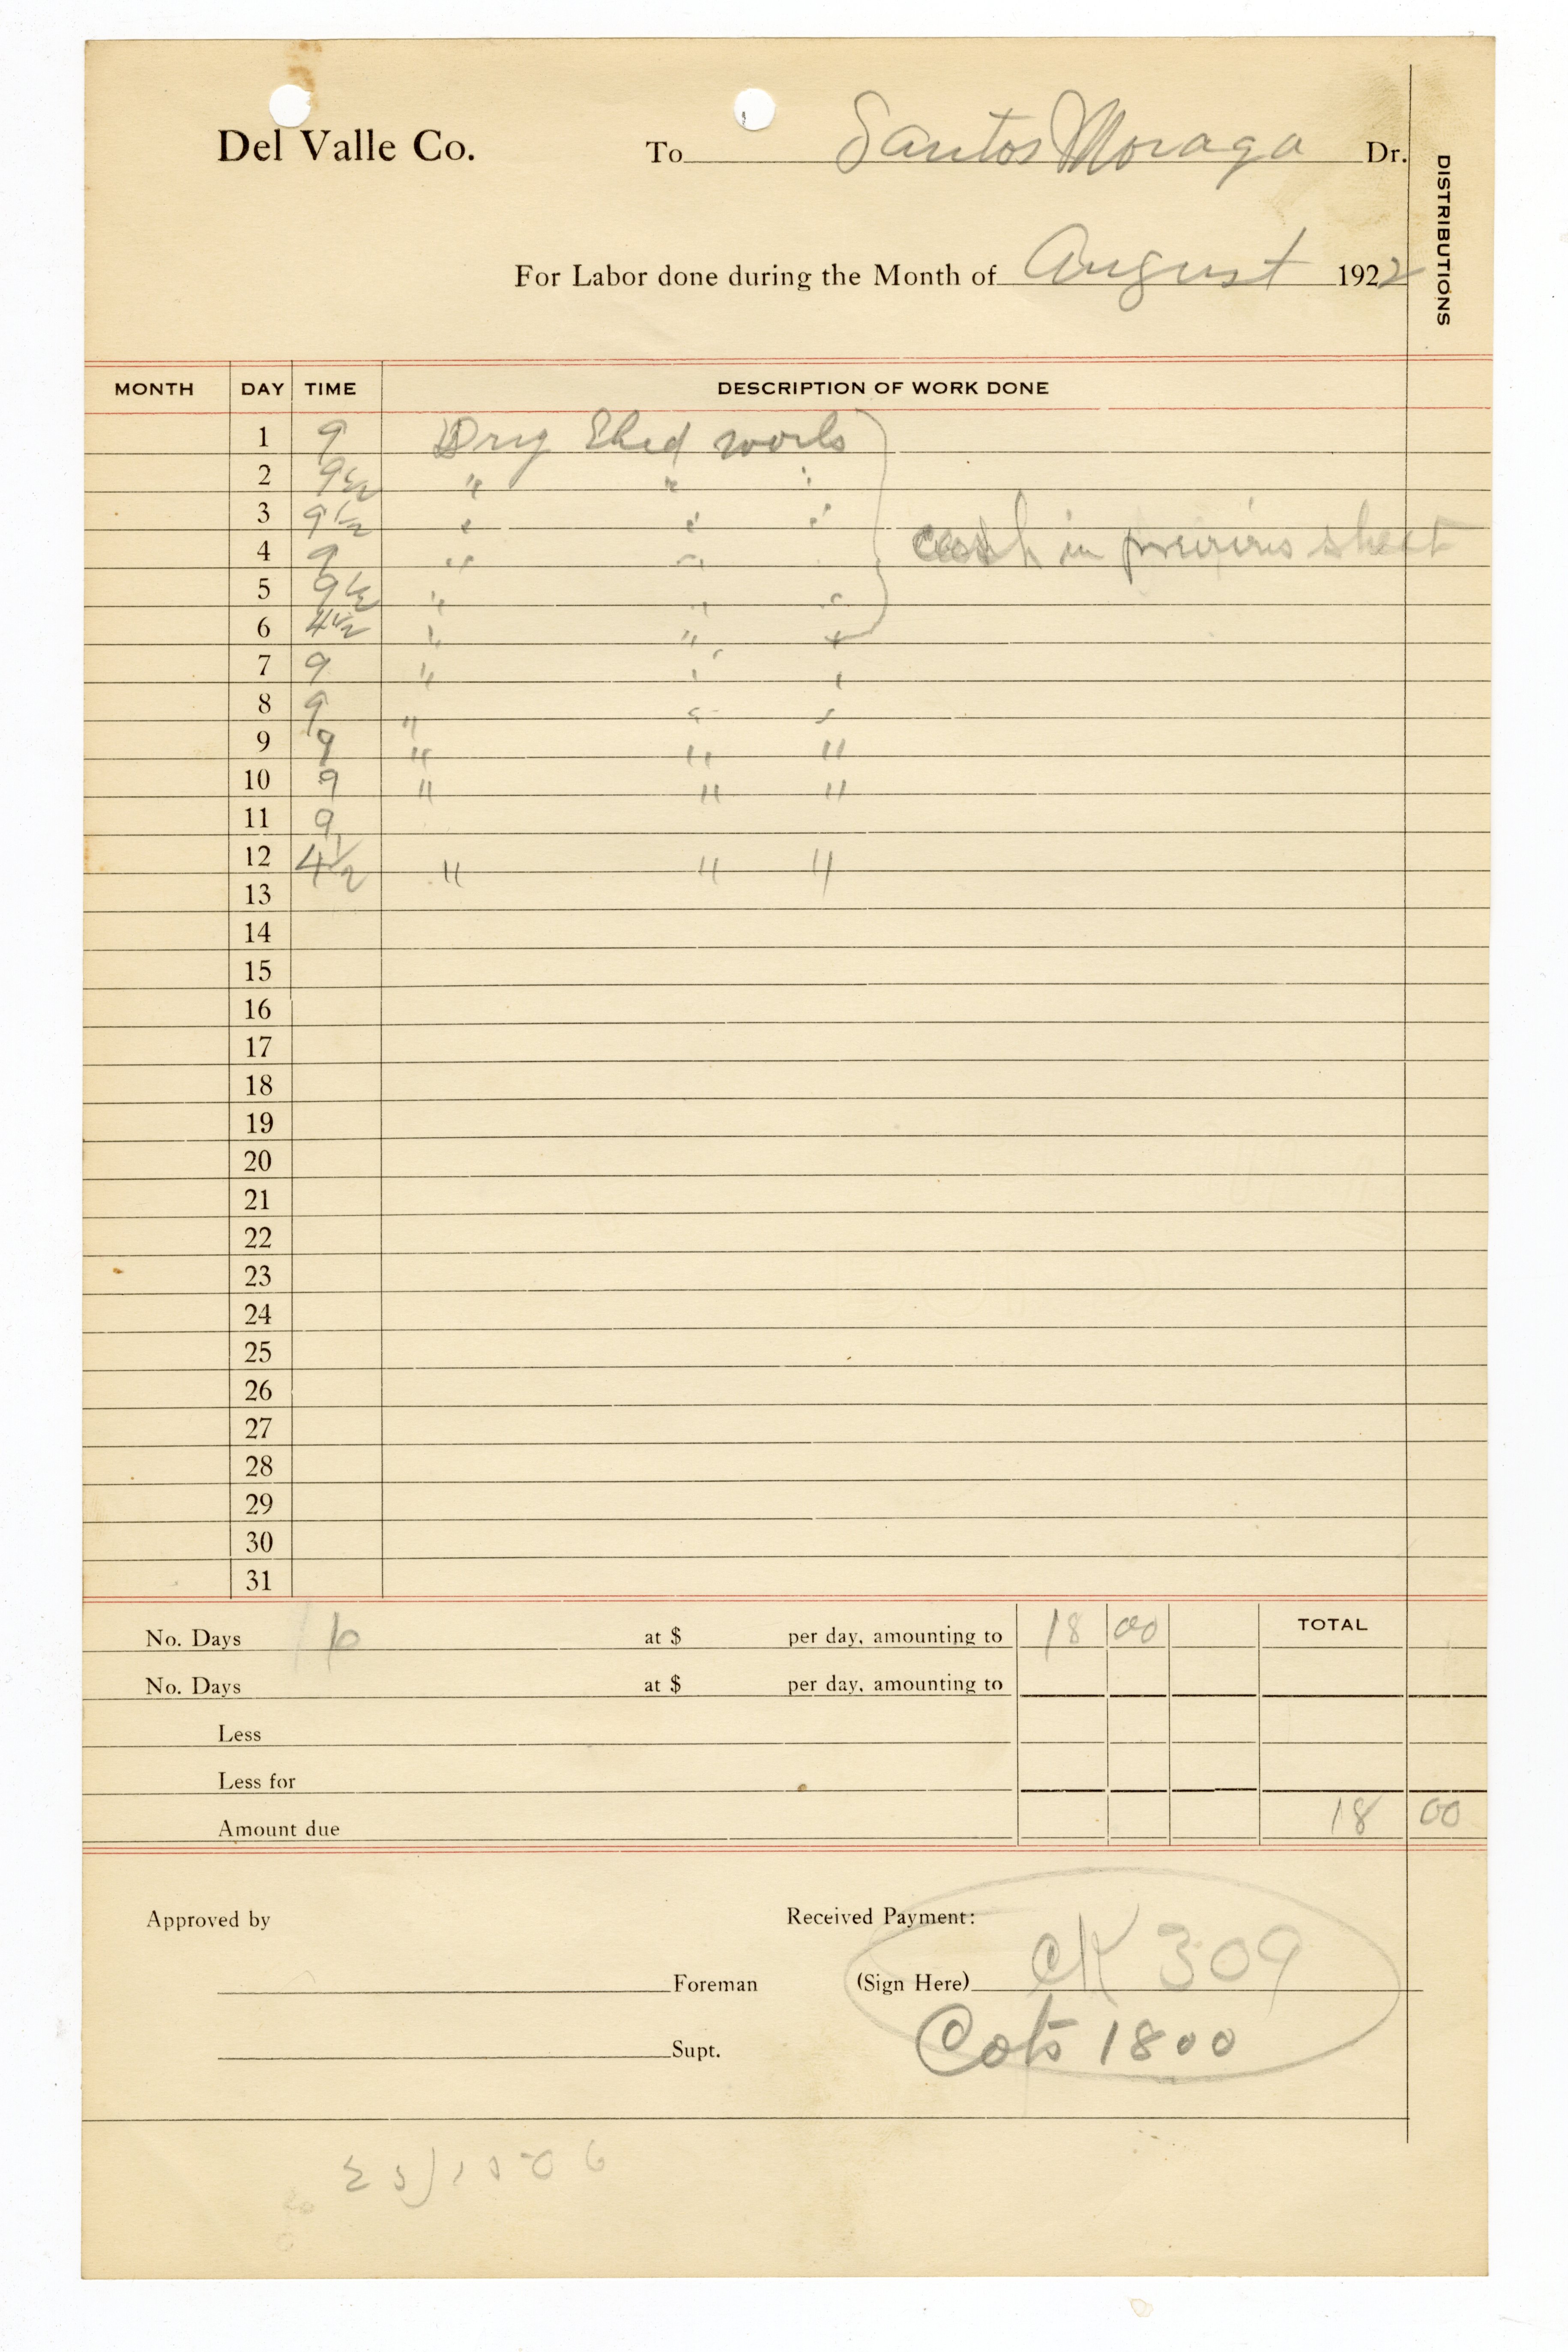 Del Valle Co. To Santos Moraga Dr.
DISTRIBUTIONS
For Labor done during the Month of August 1922
MONTH DAY TIME DESCRIPTION OF WORK DONE
1 9 Dry Shed work
2 9 1/2 " " "
3 9 1/2 " " "
4 9 " "
cash in previous sheet
5 9 1/2 " " "
6 4 1/2 " " "
7 9 " " "
8 9 " " "
9 9 " " "
10 9 " " "
11 9
12 4 1/2 " " "
13
14
15
16
17
18
19
20
21
22
23
24
25
26
27
28
29
30
31
No. Days at $ per day, amounting to 18 00 TOTAL
No. Days at $ per day, amounting to
Less
Less for
Amount due 18 00
Approved by Received Payment:
Foreman (Sign Here) CK 309
Supt. Cots 1800